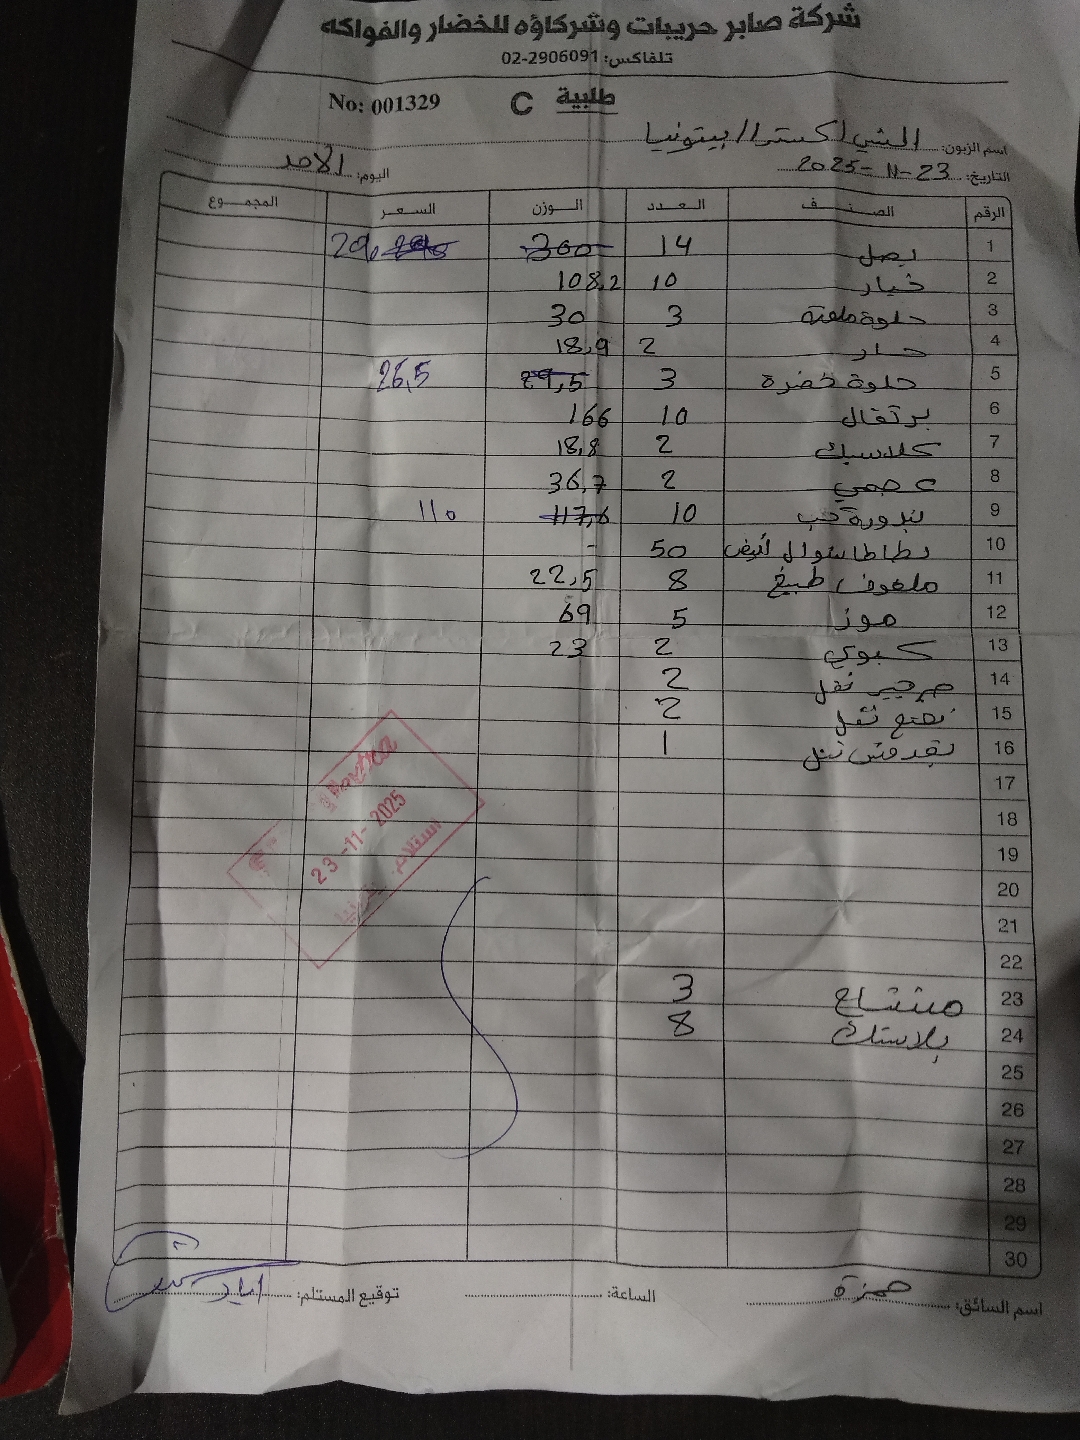 شركة صابر حريبات وشركاؤه للخضار والفواكه
تلفاكس: 02-2906091
No: 001329 C طلبية
اسم الزبون: الشني اكسترا / بيتونيا
التاريخ: 23-11-2025 اليوم: الأحد
الرقم الصنف العدد الوزن السعر المجموع
1 بصل 14 300
2 خيار 10 108,2
3 حلوة ملونة 3 30
4 حار 2 18,9
5 حلوة خضرة 3 29,5 26,5
6 برتقال 10 166
7 كلاسيك 2 18,8
8 عجمي 2 36,7
9 بندورة حب 10 117,6 110
10 بطاطا شوال أبيض 50 -
11 ملفوف طبيخ 8 22,5
12 موز 5 69
13 كبوي 2 23
14 جرجير نقل 2
15 نعنع نقل 2
16 بقدونس نقل 1
17
18
19
20
21
22
23 مشتاح 3
24 بلاستك 8
25
26
27
28
29
30
23-11-2025
استلام بيتونيا
اسم السائق: حمزة الساعة: توقيع المستلم: اياد